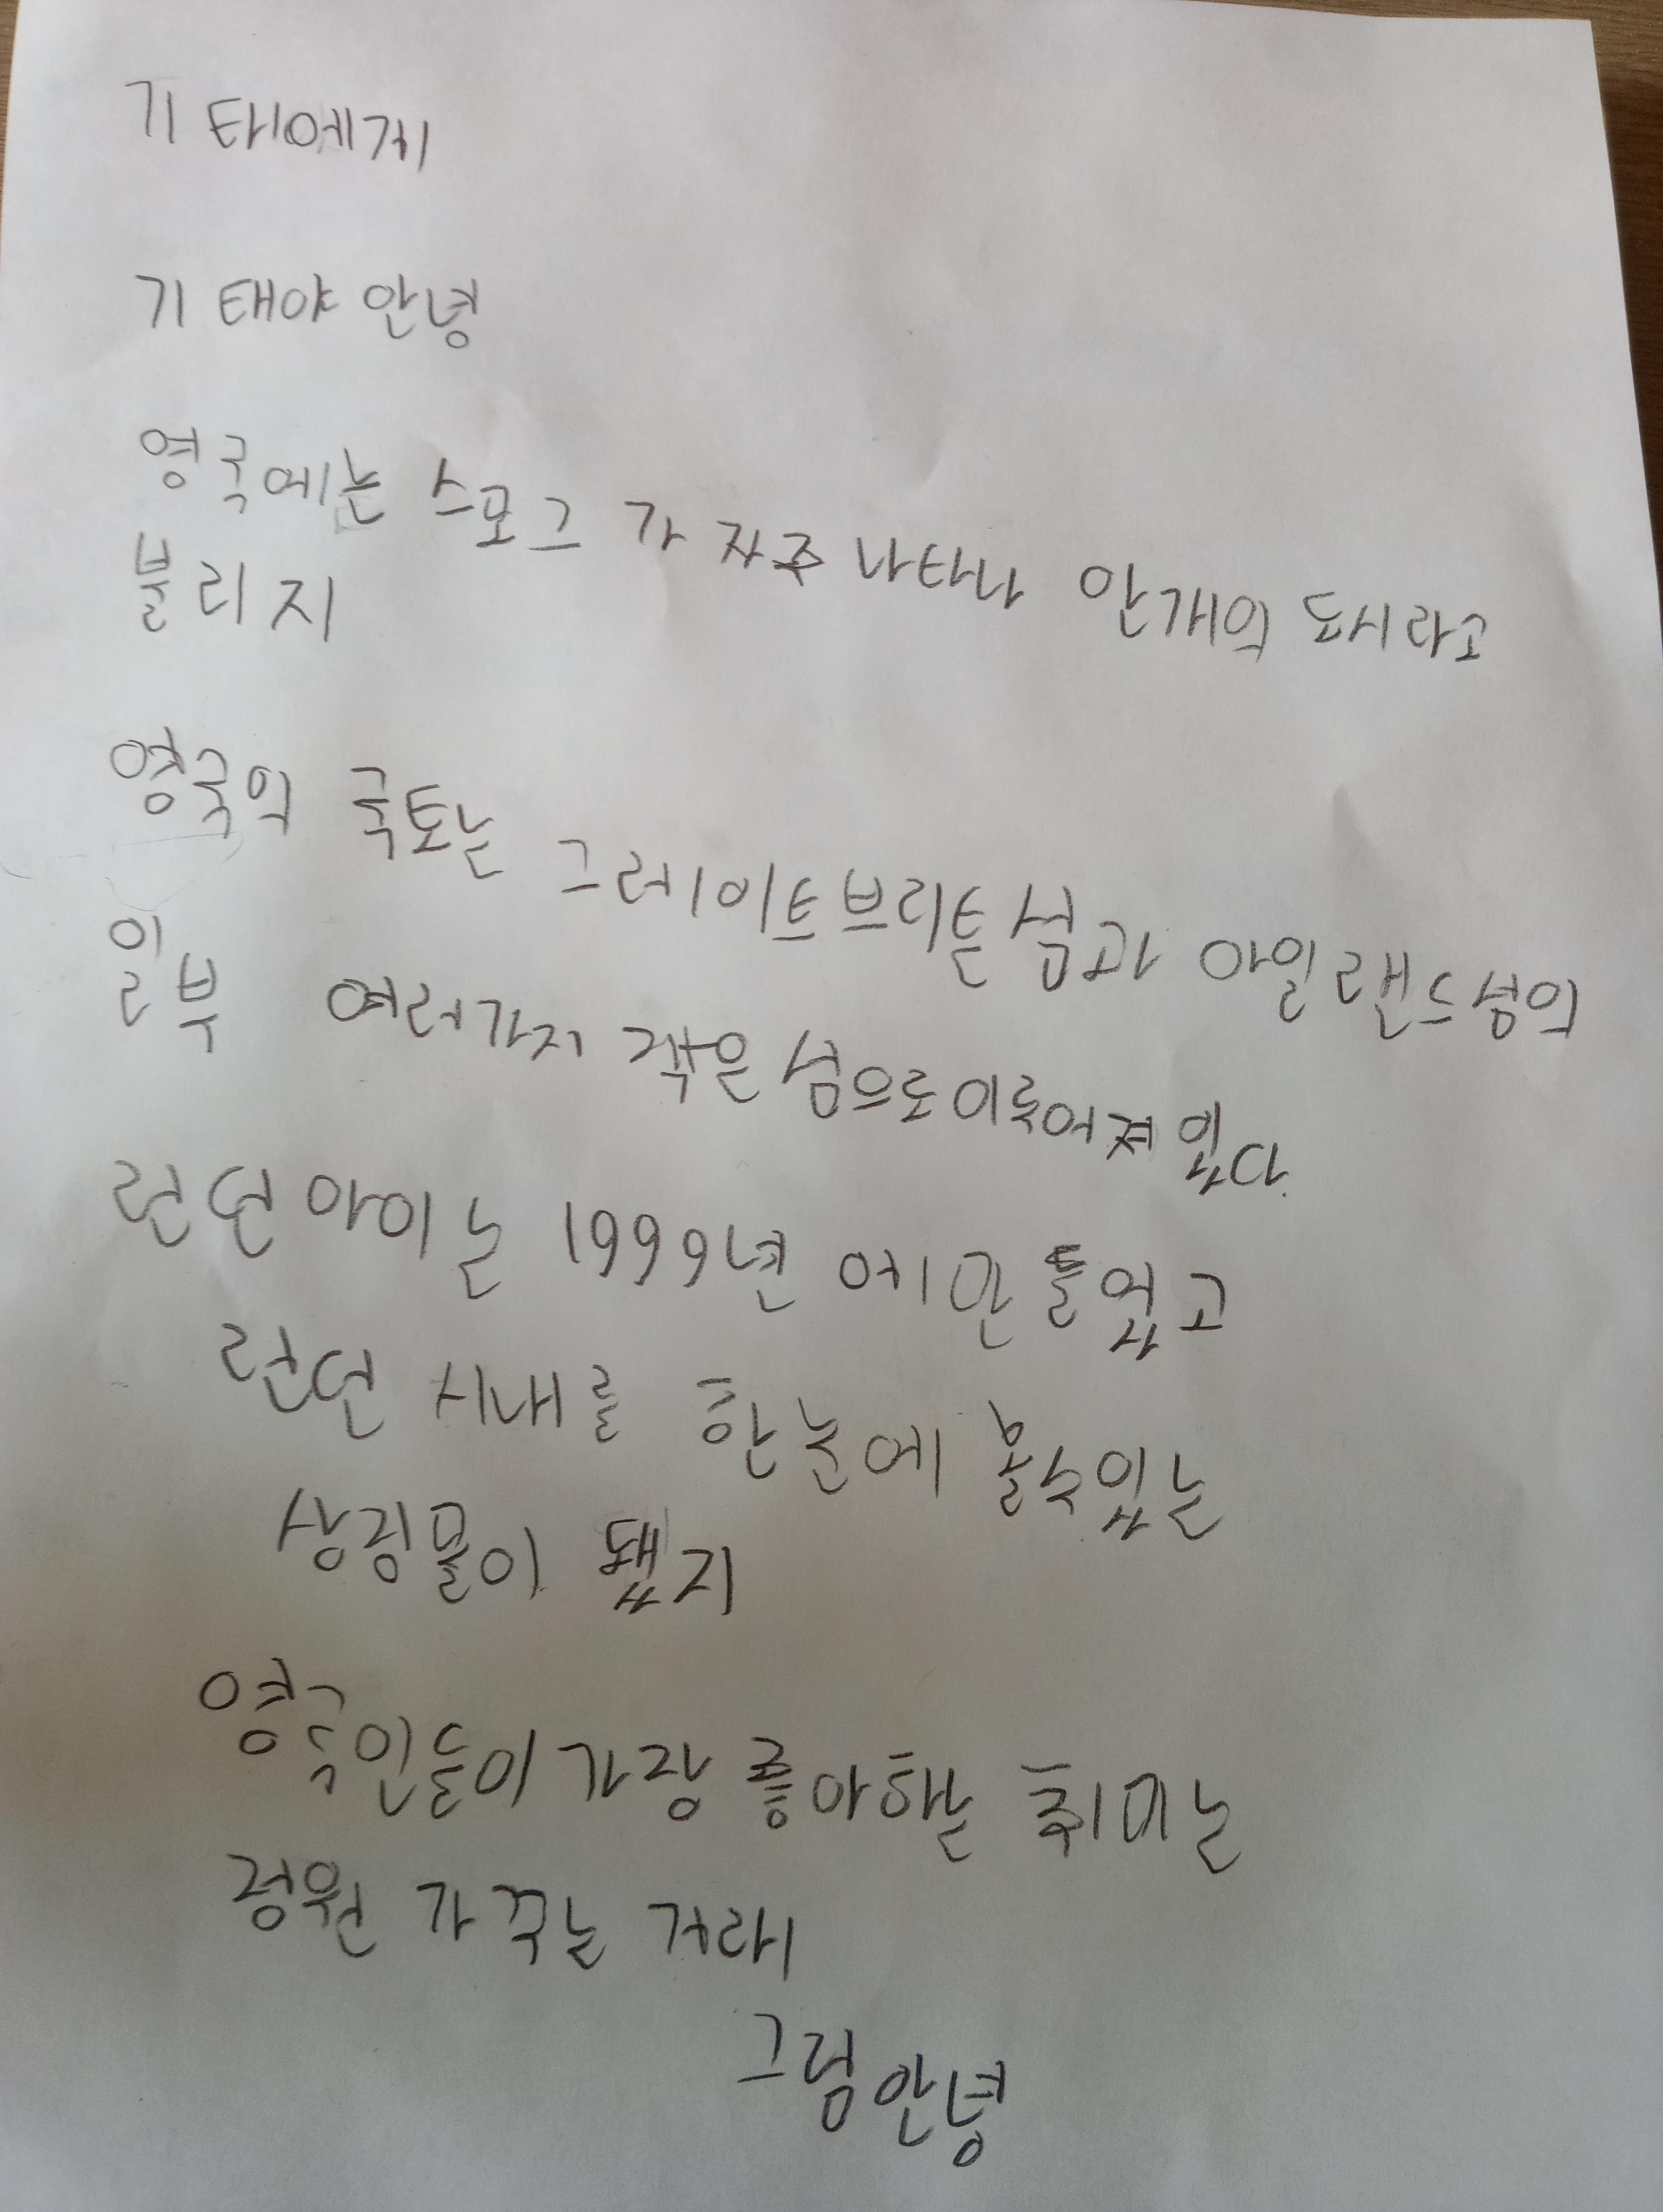 기태에게
기태야 안녕
영국에는 스모그가 자주 나타나 안개의 도시라고
불리지
영국의 국토는 그레이트브리튼섬과 아일랜드섬의
일부 여러가지 작은 섬으로 이루어져 있다.
런던 아이는 1999년에 만들었고
런던 시내를 한눈에 볼수있는
상징물이 됐지
영국인들이 가장 좋아하는 취미는
정원 가꾸는 거래
그럼 안녕